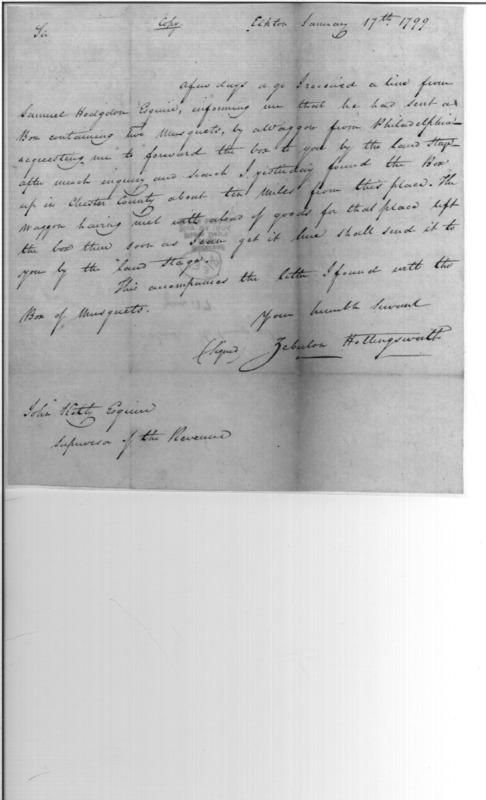 Sir Copy Elkton January 17th 1799
A few days a go I received a line from
Samuel Hodgdon Esquire, informing me that he had sent a
Box containing two Musquets, by a Waggon from Philadelphia
requesting me to forward the box to you by the land Stage
after much enquiry and search I yesterday found the Box
up in Chester County about ten Miles from this place. The
Waggon having met with a load of goods for that place left
the box there soon as I can get it here shall send it to
you by the land Stage.
This accompanies the letter I found with the
Box of Musquets.
Your humble Servant
(Signed) Zebulon Hollingsworth
John Kilty Esquire
Supervisor of the Revenue